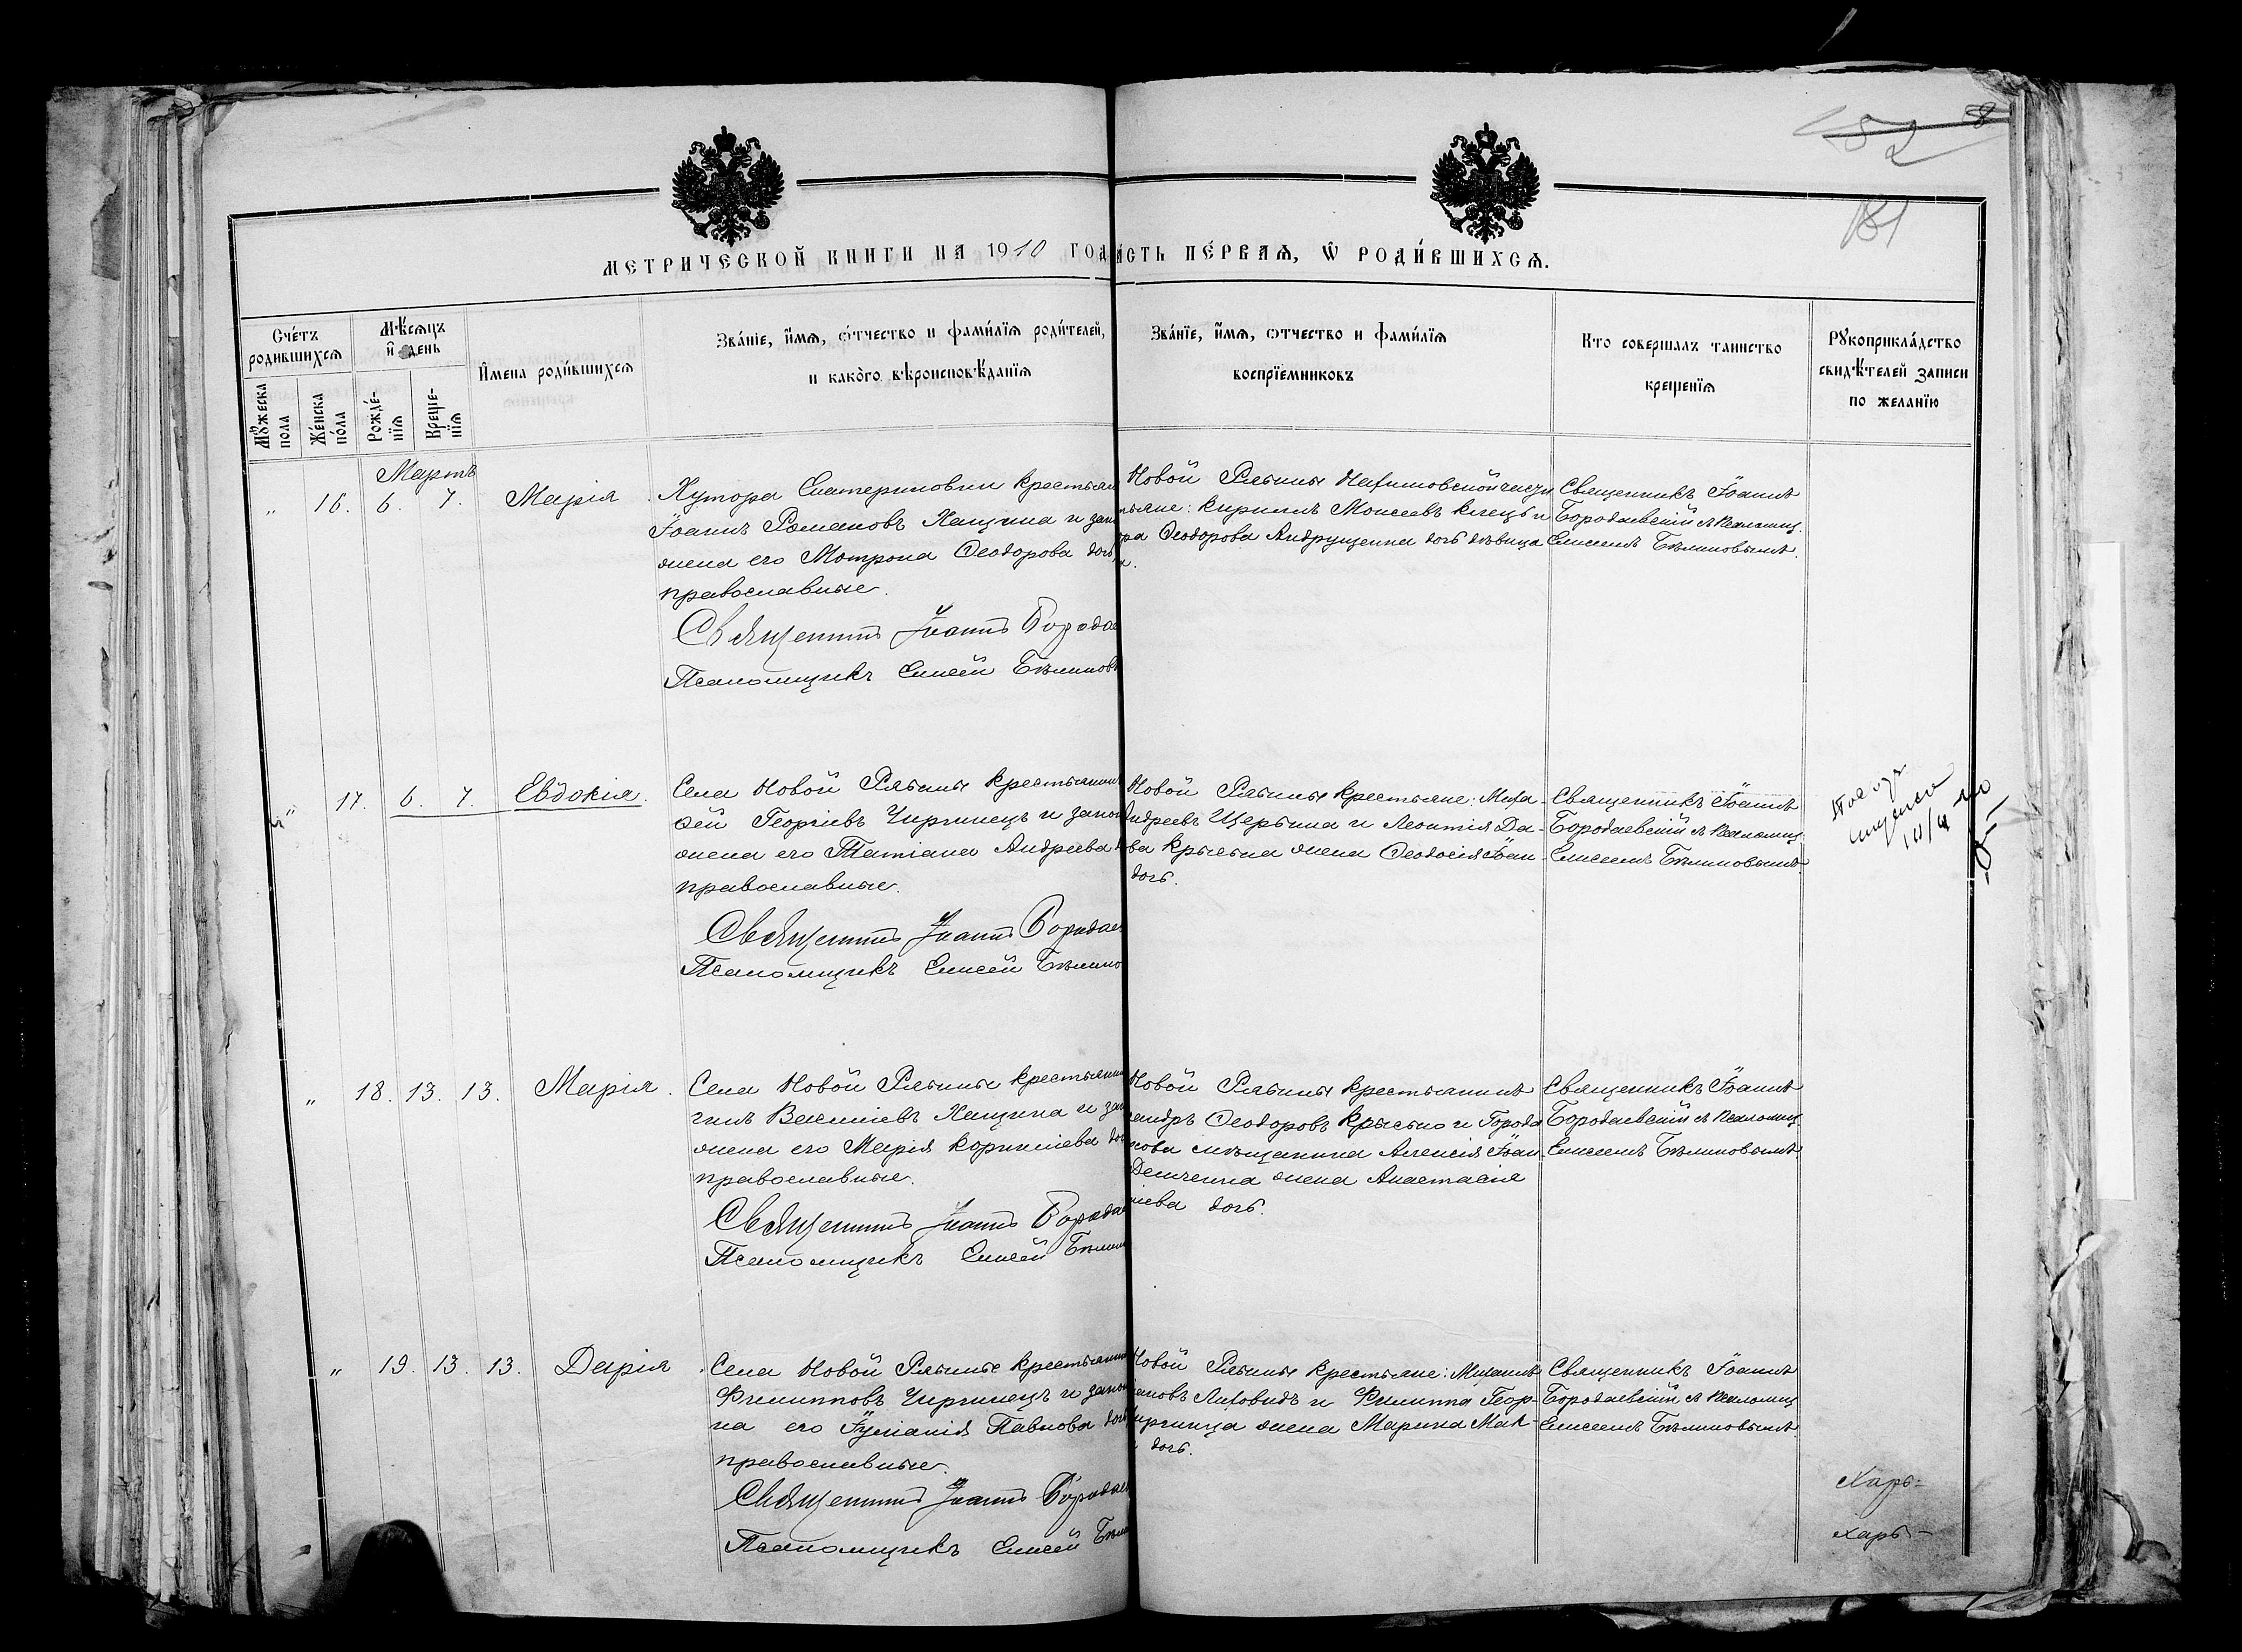 52
8
181
МЕТРИЧЕСКОЙ КНИГИ НА 1910 ГОД
АСТЬ ПЕ́РВАѦ, Ѿ РОДИ́ВШИХСѦ.
Сче́тъ родившихсѧ
Мꙋжеска пола
Же́нска по́ла
Мѣ́сѧцъ и день
Рожде́нїѧ
Креще́нїѧ
Имена роди́вшихсѧ
Зва́нїе, и́мѧ, о́тчество и фами́лїѧ роди́телей,
и како́го вѣроисповѣ́данїѧ
Зва́нїе, и́мѧ, отчество и фами́лїѧ
воспрїе́мниковъ
Кто совершалъ таинство
крещенїѧ
Рꙋкоприкла́дство
свидѣ́телей записи
по желанїю
Мартъ
" 16. 6. 7. Марія
Хутора Екатериновки крестьян
Іоаннъ Романовъ Кащина и зак
жена его Мотрона Ѳеодорова доч
православные.
Священникъ Іоаннъ Борода
Псаломщикъ Елисей Бѣлинов
Новой Рябины крестьяне: Кириллъ Моисеевъ
ра Ѳеодорова Андрущенка дочь дѣвица
Священникъ Іоаннъ
Бородаевскій съ псаломщ.
Елисеемъ Бѣлиновымъ.
" 17. 6. 7. Евдокія.
Села Новой Рябины крестьянинъ
ѳей Георгіевъ Чиргинецъ и закон
жена его Татіана Андреева
православные.
Священникъ Іоаннъ Бородае
Псаломщикъ Елисей Бѣлино
Новой Рябины крестьяне: Миха-
Андреевъ Щербина и Леонтія Да-
ва Крысына жена Ѳеодосія Іоан-
дочь.
Священникъ Іоаннъ
Бородаевскій съ псаломщ.
Елисеемъ Бѣлиновымъ.
" 18. 13. 13. Марія.
Села Новой Рябины крестьянин
гилъ Василіевъ Кащина и зак
жена его Марія Корниліева доч
православные.
Священникъ Іоаннъ Борода
Псаломщикъ Елисей Бѣлин
Новой Рябины крестьянинъ
сандръ Ѳеодоровъ Крысько и Города
кова мѣщанина Алексія Іоан-
Демченка жена Анастасія
іева дочь.
Священникъ Іоаннъ
Бородаевскій съ псаломщ.
Елисеемъ Бѣлиновымъ.
" 19. 13. 13. Дарія.
Села Новой Рябины крестьянин
Филипповъ Чиргинецъ и закон
на его Іуліанія Павлова доч
православные.
Священникъ Іоаннъ Бородае
Псаломщикъ Елисей Бѣли
Новой Рябины крестьяне: Михаилъ
ановъ Лиховидъ и Филиппа Геор-
иргинца жена Марина Мак-
дочь.
Священникъ Іоаннъ
Бородаевскій съ псаломщ.
Елисеемъ Бѣлиновымъ.
Харь-
Харь-